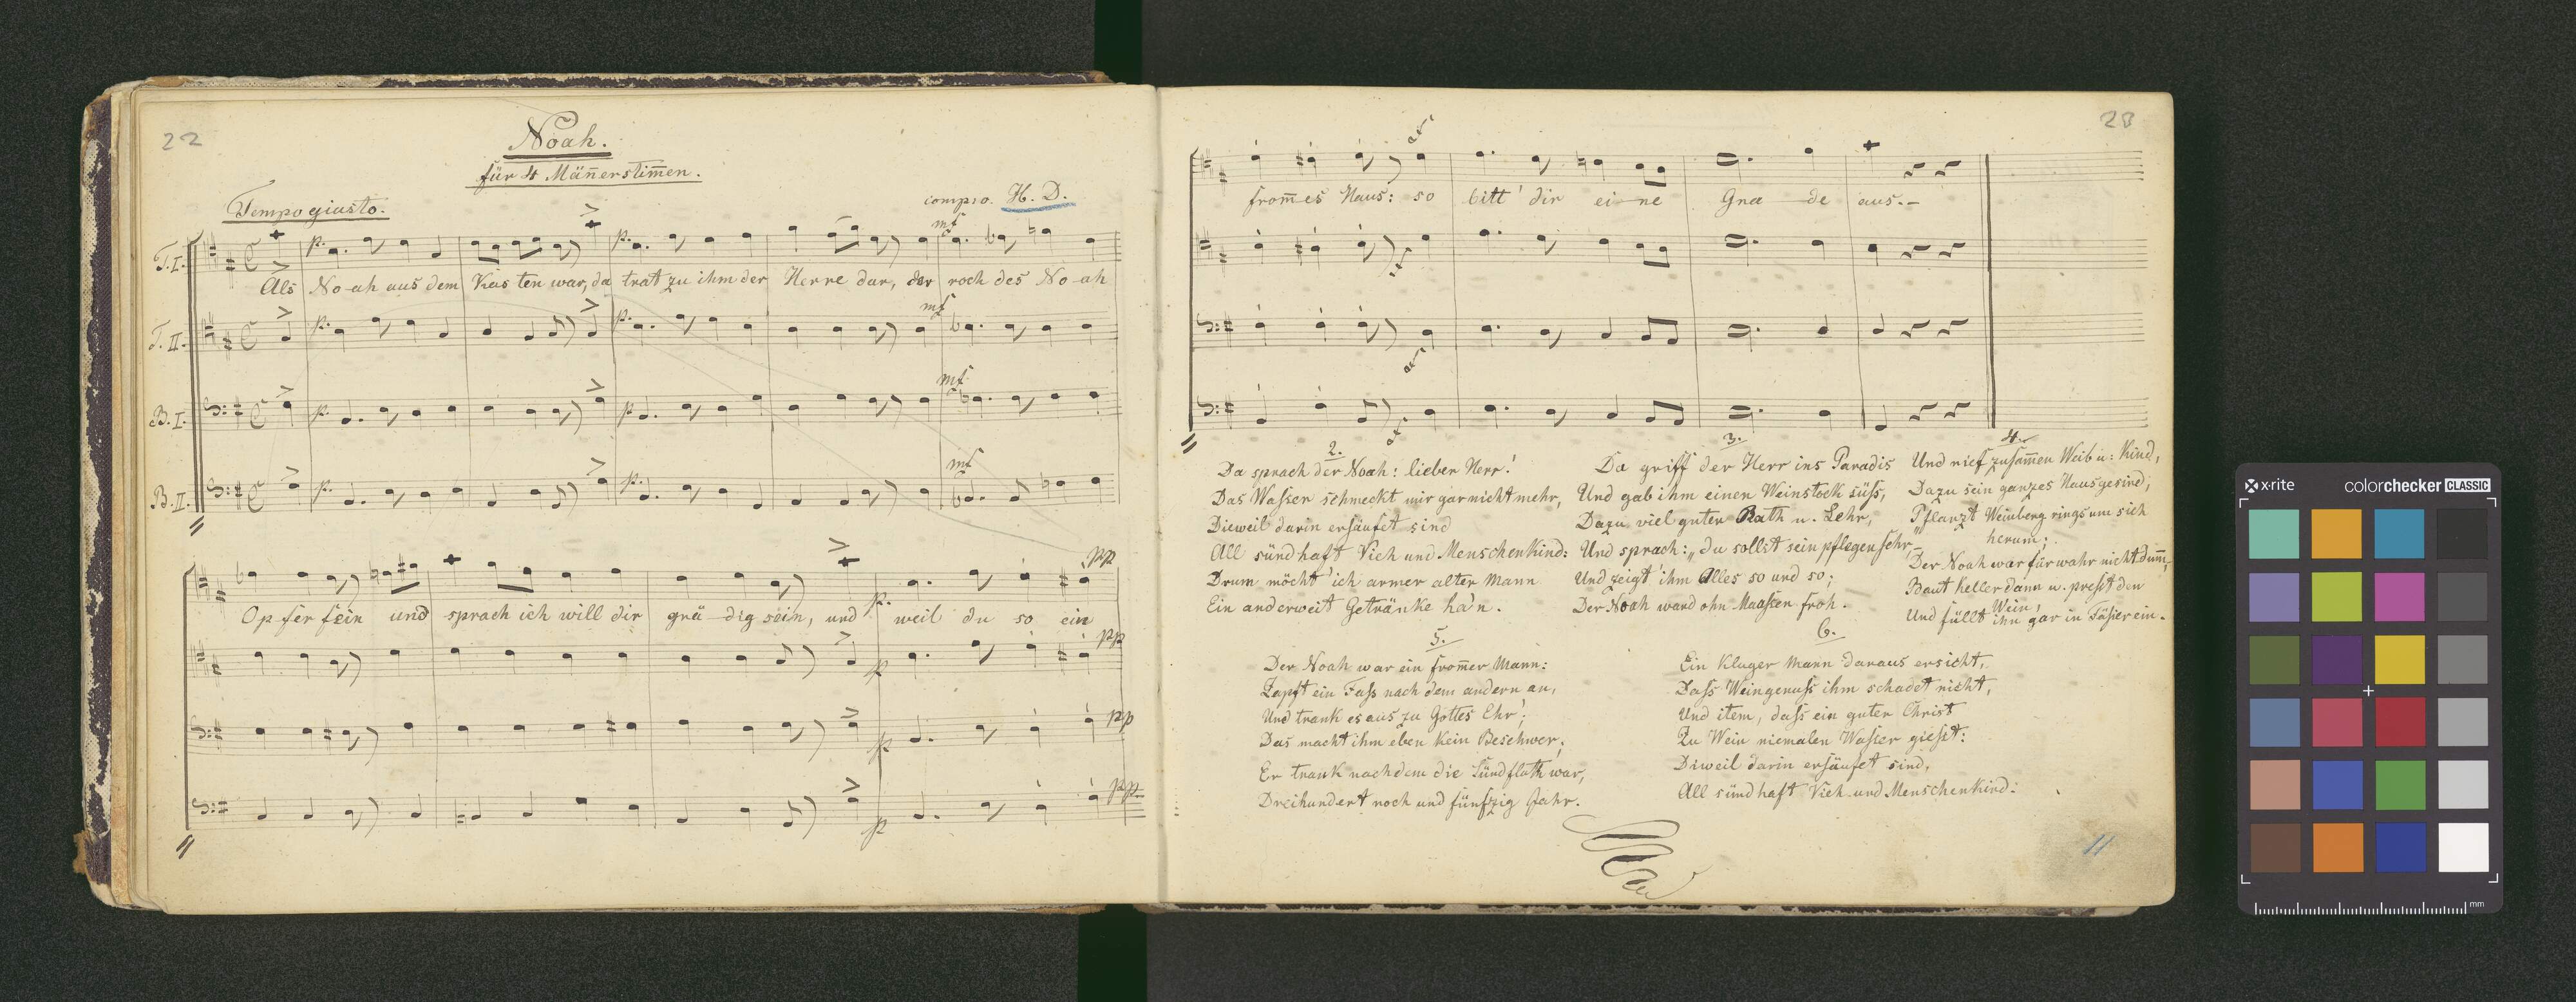 22
Noah.
für 4 Män̅erstim̅en.
Tempo giusto.
compro. H. D.
mf
T. I.
p.
p.
Als No-ah aus dem Kas ten war, da trat zu ihm der Herre dar, der roch des No-ah
mf
T. II.
p.
p.
mf
B. I.
p.
p.
mf
B. II.
p.
p.
pp
p.
Opfer fein und sprach ich will dir grä-dig sein, und weil du so ein
pp
p
pp
p
pp.
p
23
from̅es Haus: so bitt' dir ei-ne Gna-de aus.-
2.
Da sprach der Noah: lieber Herr!
Das Waſser schmeckt mir gar nicht mehr,
Dieweil darin ersäufet sind
All sündhaft Vieh und Menschenkind:
Drum möcht' ich armer alter Mann
Ein anderweit Getränke ha'n.
3.
Da griff der Herr ins Paradis
Und gab ihm einen Weinstock süſs,
Dazu viel guten Rath u. Lehr,
Und sprach: „du sollst sein pflegen sehr,
Und zeigt' ihm Alles so und so;
Der Noah ward ohn Maaſsen froh.
4.
Und rief zusam̅en Weib u: Kind,
Dazu sein ganzes Hausgesind;
Pflanzt Weinberg rings um sich
herum;
Der Noah war fürwahr nicht dum̅,
Baut Keller dann u. preſst den
Wein,
Und füllt ihn gar in Fäſser ein.
5.
Der Noah war ein from̅er Mann:
Zapft ein Faſs nach dem andern an,
Und trank es aus zu Gottes Ehr';
Das macht ihm eben kein Beschwer;
Er trank nachdem die Sündfluth war,
Dreihundert noch und fünfzig Jahr.
6.
Ein kluger Mann daraus ersicht,
Daſs Weingenuſs ihm schadet nicht,
Und item, daſs ein guter Christ
Zu Wein niemalen Waſser gieſst:
Diweil darin ersäufet sind,
All sündhaft Vieh und Menschenkind:
11
x-rite
colorchecker CLASSIC
mm